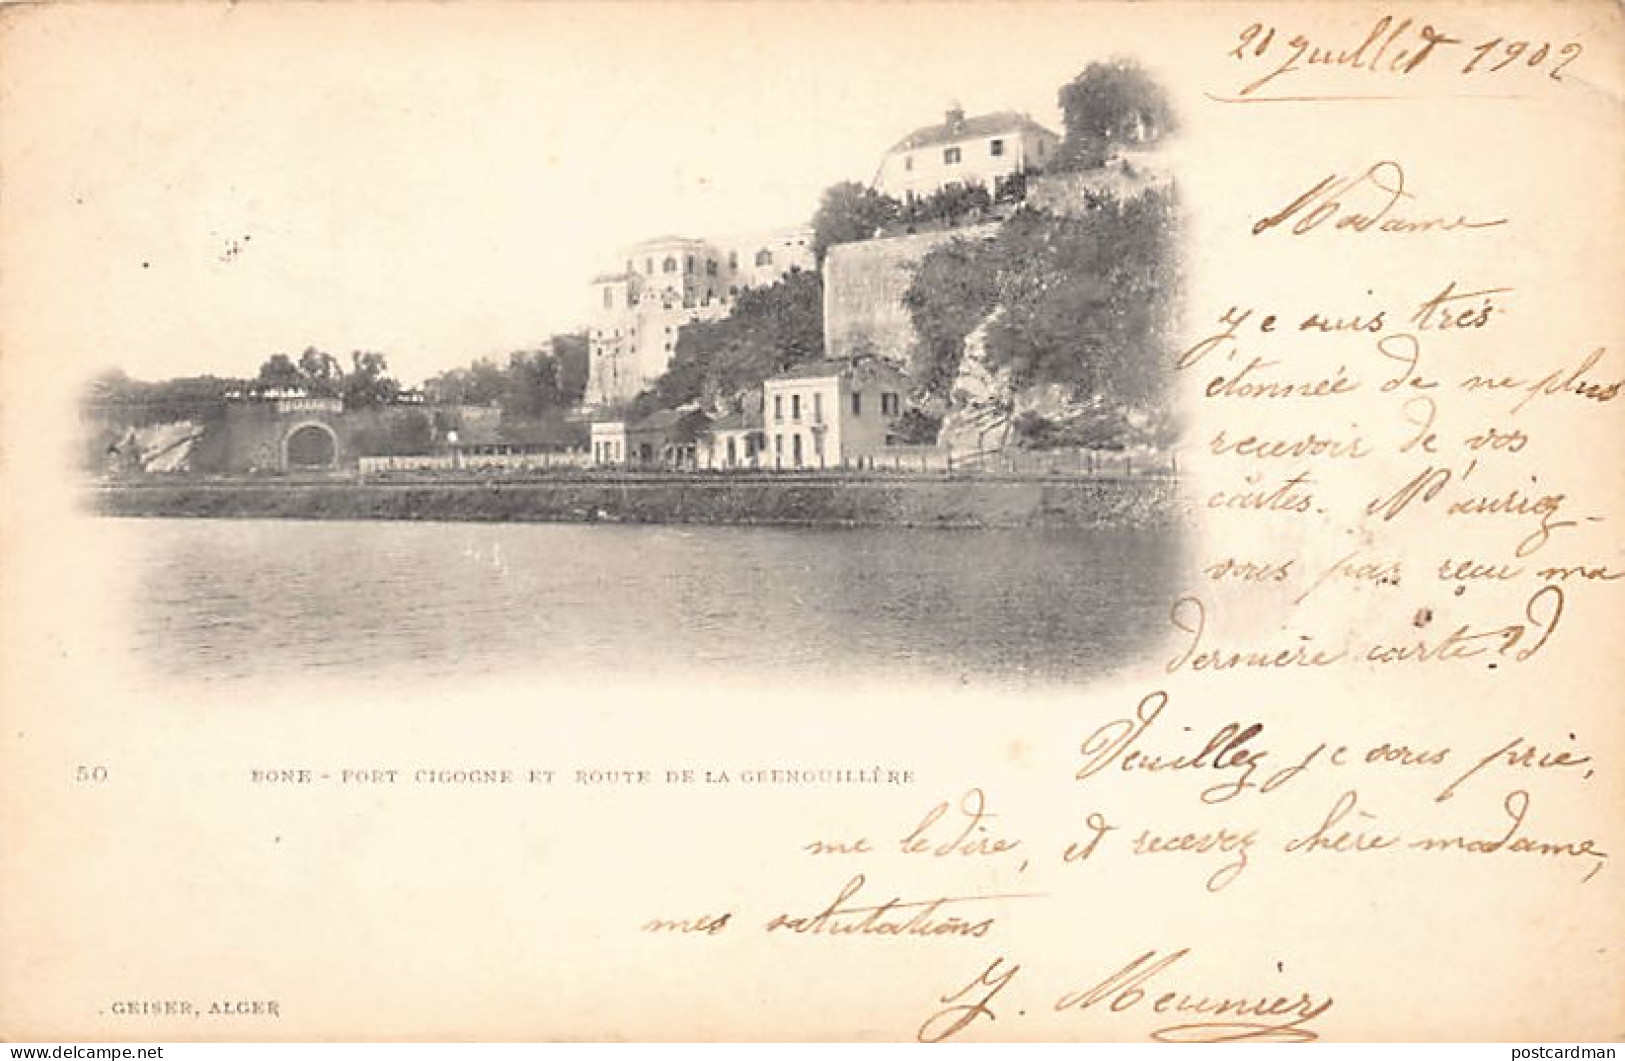 20 juillet 1902
Madame
je suis très
étonnée de ne plus
recevoir de vos
cartes. N'auriez-
vous pas reçu ma
dernière carte?
Veuillez je vous prie,
50 BONE - FORT CIGOGNE ET ROUTE DE LA GRENOUILLÈRE
me le dire, et recevez chère madame,
mes salutations
J. Meunier
. GEISER, ALGER
delcampe.net
postcardman